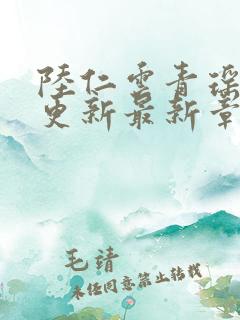 陸仁雲青瑤
更新最新章
毛靖
未经同意禁止转载